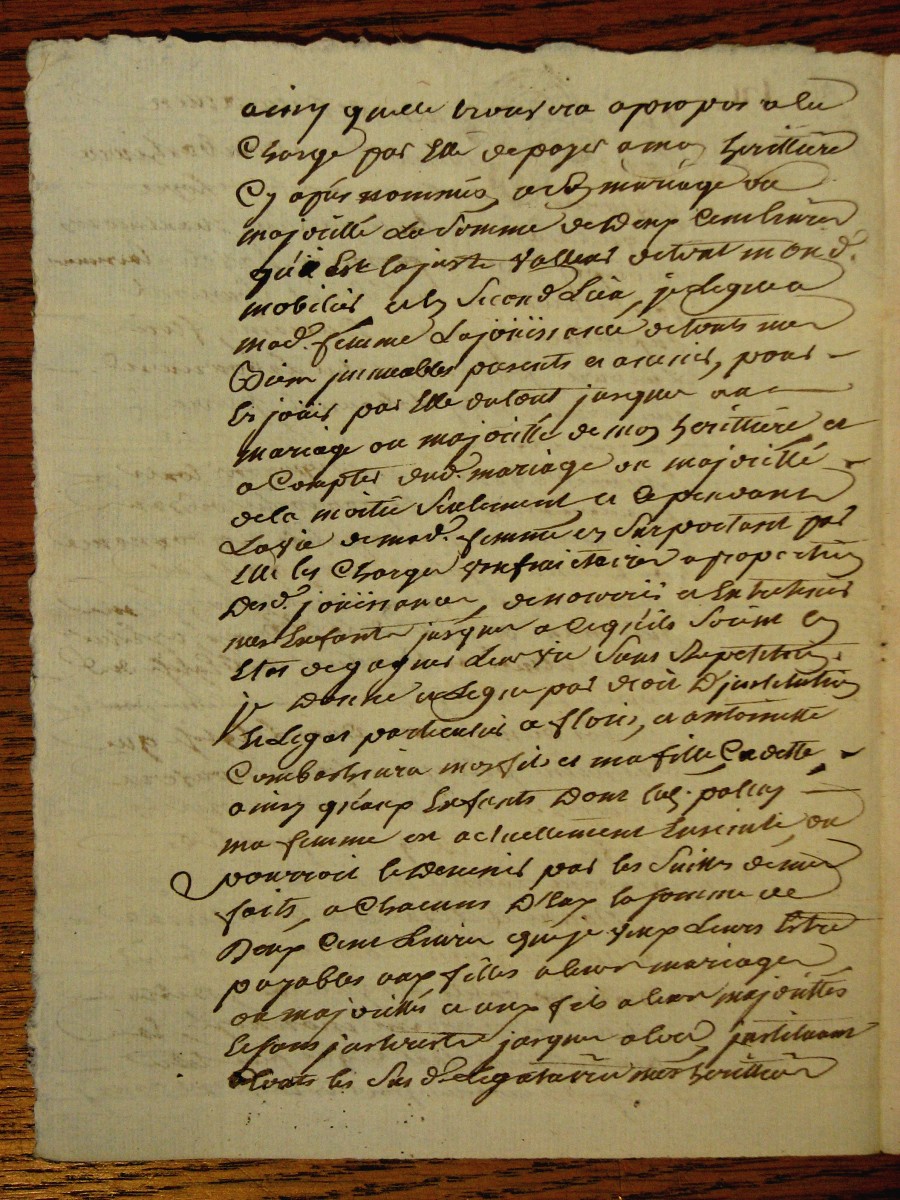 ainsy quelle trouvera apropos a la
Charge par Elle de payer a mon herittière
Cy après nommée, a son mariage ou
majorité La Somme de Deux Cens Livres
qui Est la juste Valleur de tout mon d.
mobilier et en Second Lieu, je Legue a
mad. femme La joüissance de touts mes
Biens jmmeubles presents et avenir, pour
En joüir par Elle du tout jusques au
mariage ou majorité de mon herittière et
a Compter dud. mariage ou majorité
de la moitié Seulement et Ce pendant
La vie de mad. femme en Supportant par
Elle les Charges Vsufruictaires a proportion
Desd. joüissances, de nourrir et Entretenir
mes Enfants jusques a Ce qu'ils Soient En
Etat de gagner Leur vie Sans Repetition,
je Donne et Legue par droit D'jnstitution
et Legat particulier a floris, et antoinette
mon fils et ma fille Cadette
ainsy qu'aux Enfants Dont lad.
ma femme est actuellement Enceinte, ou
pourroit le Devenir par les Suittes de mes
faits, a Chacuns D'Eux la somme de
Deux Cens Livres que je Veux Leurs Estre
payables aux filles a leurs mariages
ou majorités, et aux fils a leurs majorittés
le sans jnterests jusques alors, jnstituant
touts les Sus d. Legataires mes herittiers